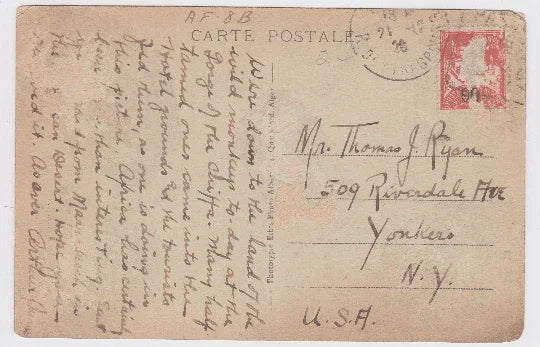 AF-8B
CARTE POSTALE
Were down to the land of the
wild monkeys to day at the
Gorge of the Chiffa. Many half
tamed ones came into the
Hotel grounds & the tourists
fed them, as one is doing in
this picture. Africa has certainly
been interesting. Sent
you card from
the desert. Hope you
As ever
Mr. Thomas J. Ryan
509 Riverdale Ave
Yonkers
N.Y.
U.S.A.
90